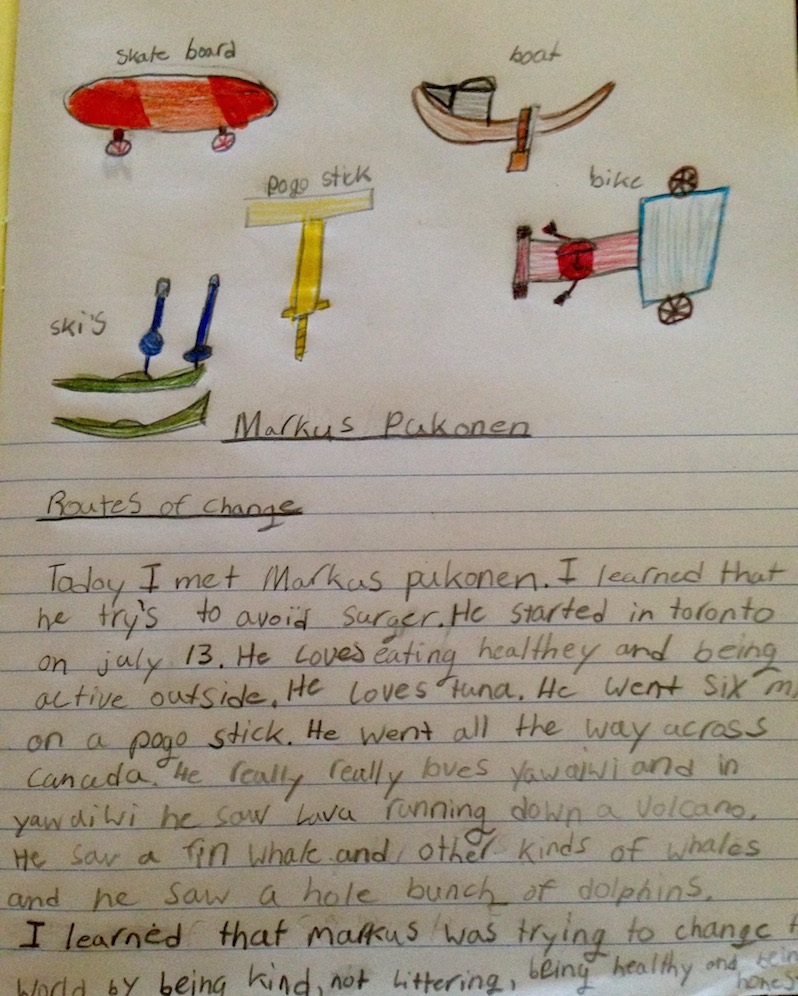 skate board
boat
pogo stick
bike
ski's
Markus Pukonen
Routes of change
Today I met Markus pukonen. I learned that
he try's to avoid surger. He started in toronto
on july 13. He loves eating healthey and being
active outside. He loves tuna. He went six
on a pogo stick. He went all the way across
Canada. He really really loves yawaiwi and in
yawaiwi he saw Lava running down a Volcano.
He saw a fin whale and other kinds of whales
and he saw a hole bunch of dolphins.
I learned that markus was trying to change
world by being kind, not littering, being healthy and